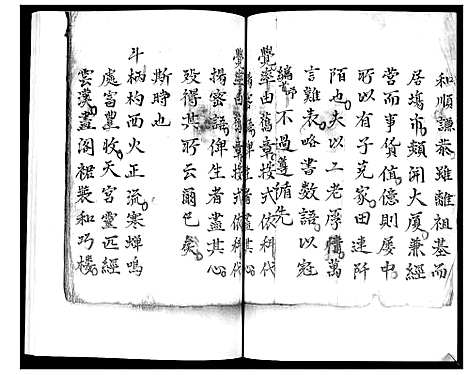 和順謙恭雖離祖基而
居塲市頻開大厦兼經
营而事貨值億則屡中
所以有子克家田連阡
陌也夫以二老厚德萬
言難表略書数語以冠
編首不過遵循先
覺率由舊章按式依科代
揚密語俾生者盡其心
殁得其所云爾已矣
斯時也
斗柄杓西火正流寒蟬鳴
處富豐收天宮靈匹經
雲漢畫阁裙裝和巧楼